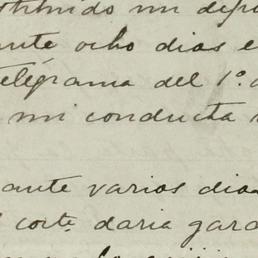 mi
ante ocho dias e
telégrama del 1º
mi conducta
ante varios dias
cort. daria gara